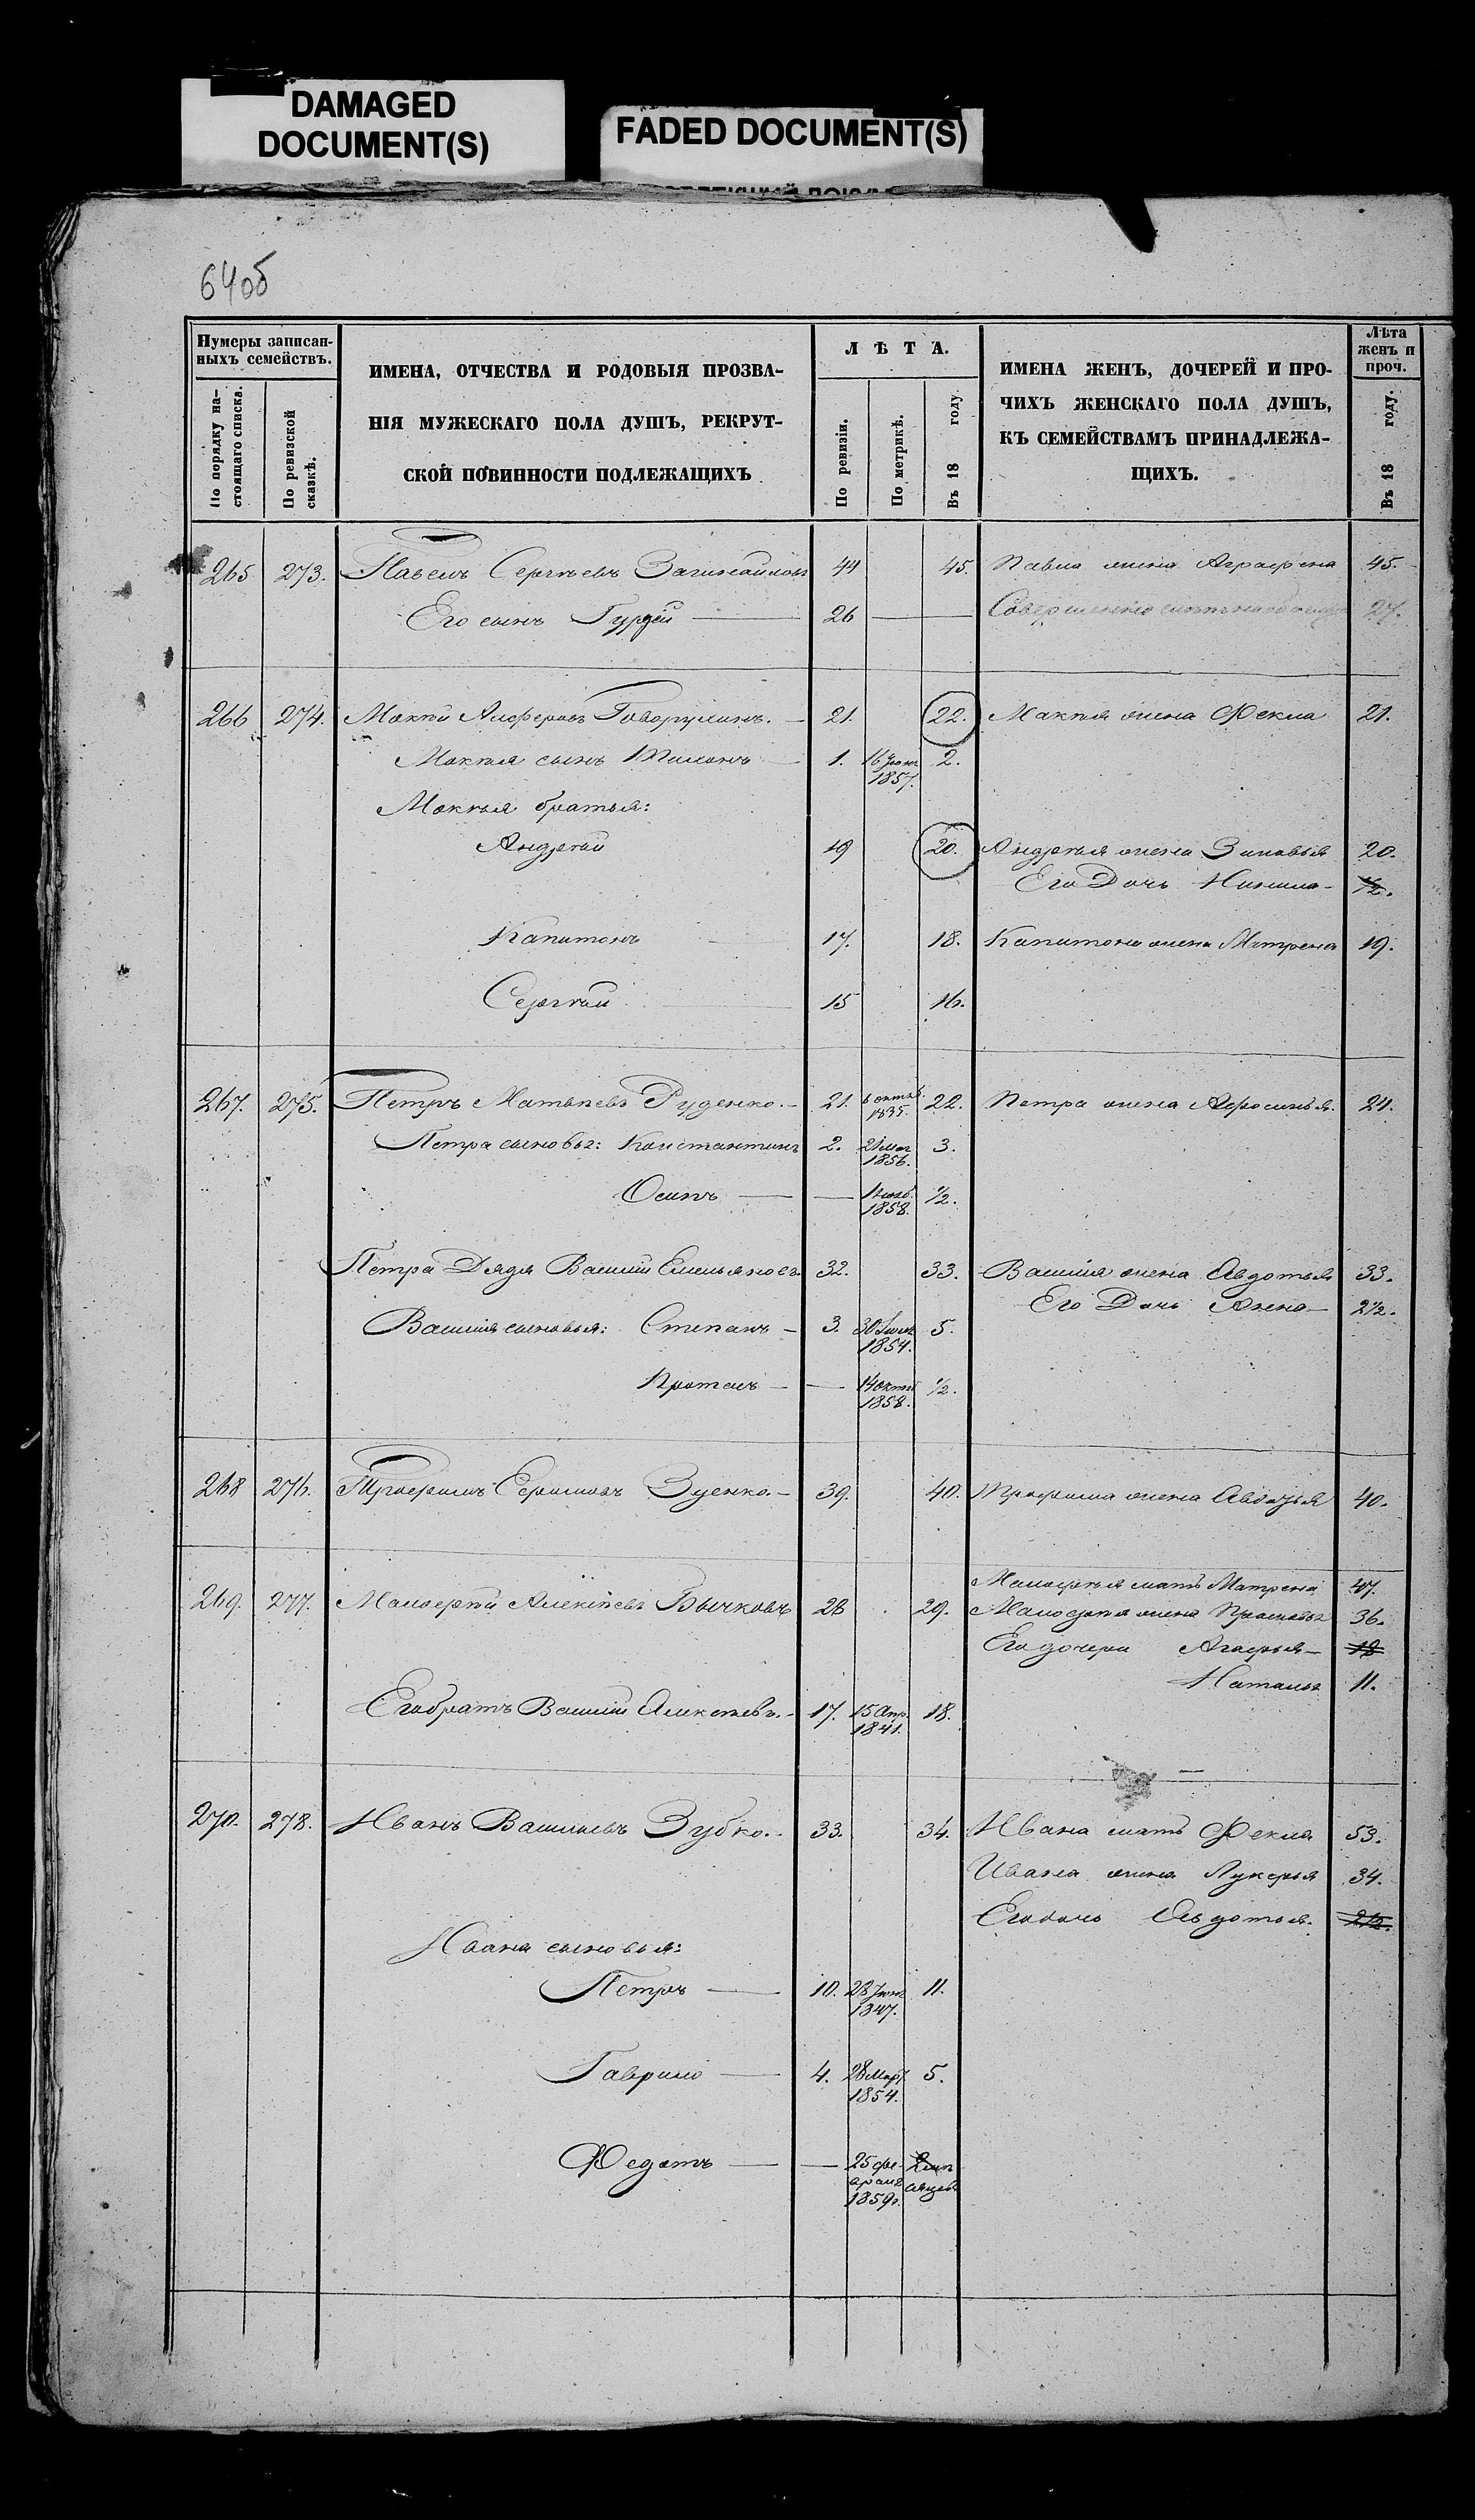 DAMAGED
DOCUMENT(S)
FADED DOCUMENT(S)
64об
Нумеры записан-
ныхъ семействъ.
По порядку на-
стоящаго списка.
По ревизской
сказкѣ.
ИМЕНА, ОТЧЕСТВА И РОДОВЫЯ ПРОЗВА-
НІЯ МУЖЕСКАГО ПОЛА ДУШЪ, РЕКРУТ-
СКОЙ ПОВИННОСТИ ПОДЛЕЖАЩИХЪ
Л Ѣ Т А.
По ревизіи.
По метрикѣ.
Въ 18 году
ИМЕНА ЖЕНЪ, ДОЧЕРЕЙ И ПРО-
ЧИХЪ ЖЕНСКАГО ПОЛА ДУШЪ,
КЪ СЕМЕЙСТВАМЪ ПРИНАДЛЕЖА-
ЩИХЪ.
Лѣта
женъ и
проч.
Въ 18 году.
265 273. Павелъ Сергѣевъ 44 45. Павла жена Аграфена 45.
Его сынъ Гурѣй 26 27.
266 274. Мокѣй Алферовъ Говорухинъ. 21. 22. Мокѣя жена Фекла 21.
Мокѣя сынъ Тимонъ 1. 16 Іюня 2.
1857.
Мокѣя братья:
Андрѣй 19 20. Андрѣя жена Зиновья 20.
Его Дочь 1/2.
Капитонъ 17. 18. Капитона жена Матрена 19.
Сергѣй 15 16.
267. 275. Петръ Матвѣевъ Руденко. 21. 6 октяб. 22. Петра жена Афросинья. 21.
1835.
Петра сыновья: Константинъ 2. 21 Мая 3.
1856.
Осипъ 1/2.
1858.
Петра Дядя Василій Емельяновъ 32. 33. Василія жена Авдотья 33.
Его Дочь Анна 2 1/2.
Василія сыновья: Степанъ 3. 30 5.
1854.
14 октяб 1/2.
1858.
268 276. Трофимъ Зуенко. 39. 40. Трофима жена Авдотья 40.
Малофѣя мать Матрена 47.
269. 277. Малофѣй Алексѣевъ Бычковъ 28 29. Малофѣя жена Прасковья 36.
Его дочери Агафья 18
Наталья 11.
Его братъ Василій Алексѣевъ. 17. 15 Апр. 18.
1841.
270. 278. Иванъ Васильевъ Зубко. 33. 34. Ивана мать Фекла 53.
Ивана жена Лукерья 34.
Его дочь Авдотья. 2 1/2.
Ивана сыновья:
Петръ 10. 28 Іюня 11.
1847.
Гаврило 4. 28 Мар. 5.
1854.
Федотъ 25 фе-
враля
1859г.